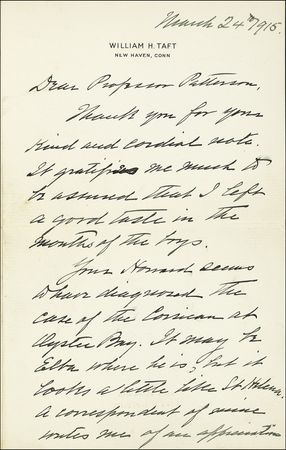 March 24th 1915.
WILLIAM H. TAFT
NEW HAVEN, CONN
Dear Professor Patterson,
Thank you for your
kind and cordial note.
It gratifies me much to
be assured that I left
a good taste in the
mouths of the boys.
Your Howard seems
to have diagnosed the
case of the Corsican at
Oyster Bay. It may be
Elba where he is, but it
looks a little like St. Helena.
A correspondent of mine
writes me of an